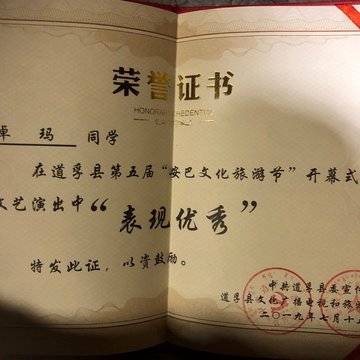 荣誉证书
HONORARY CREDENTIAL
卓玛 同学
在道孚县第五届“安巴文化旅游节”开幕式
文艺演出中“表现优秀”
特发此证，以资鼓励。
中共道孚县委宣传
道孚县文化广播电视和旅
二〇一九年七月十